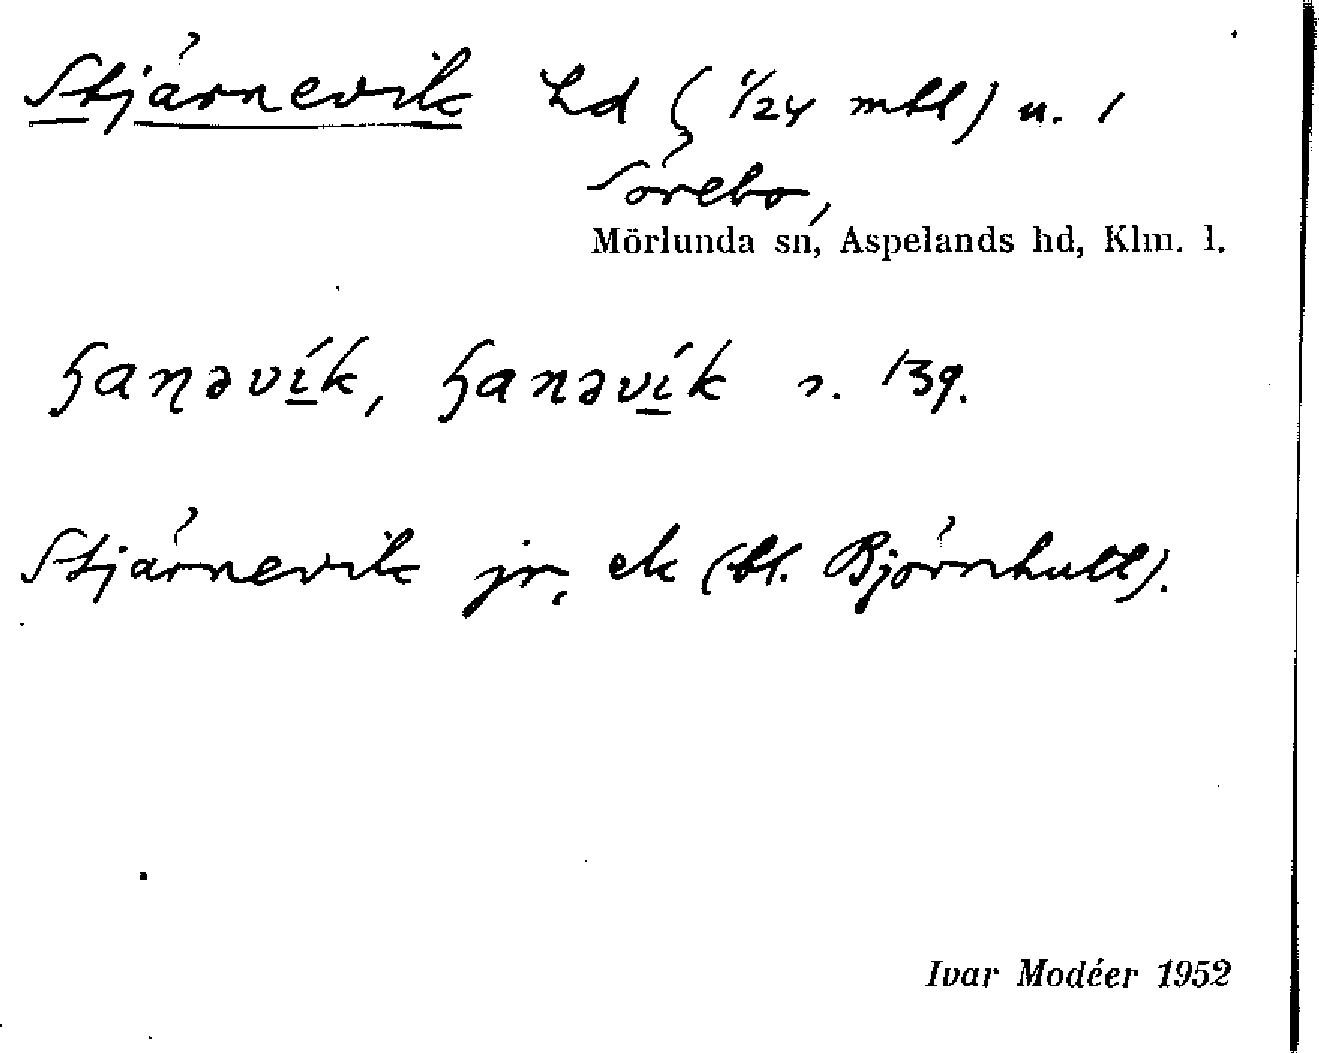 Stjärnevik hd (1/24 mtl) u. 1
Sörebo,
Mörlunda sn, Aspelands hd, Klm. l.
ɧaɳəví̲k, ɧanəví̲k s. 139.
Stjärnevik jr, ek (bl. Björnhult).
Ivar Modéer 1952